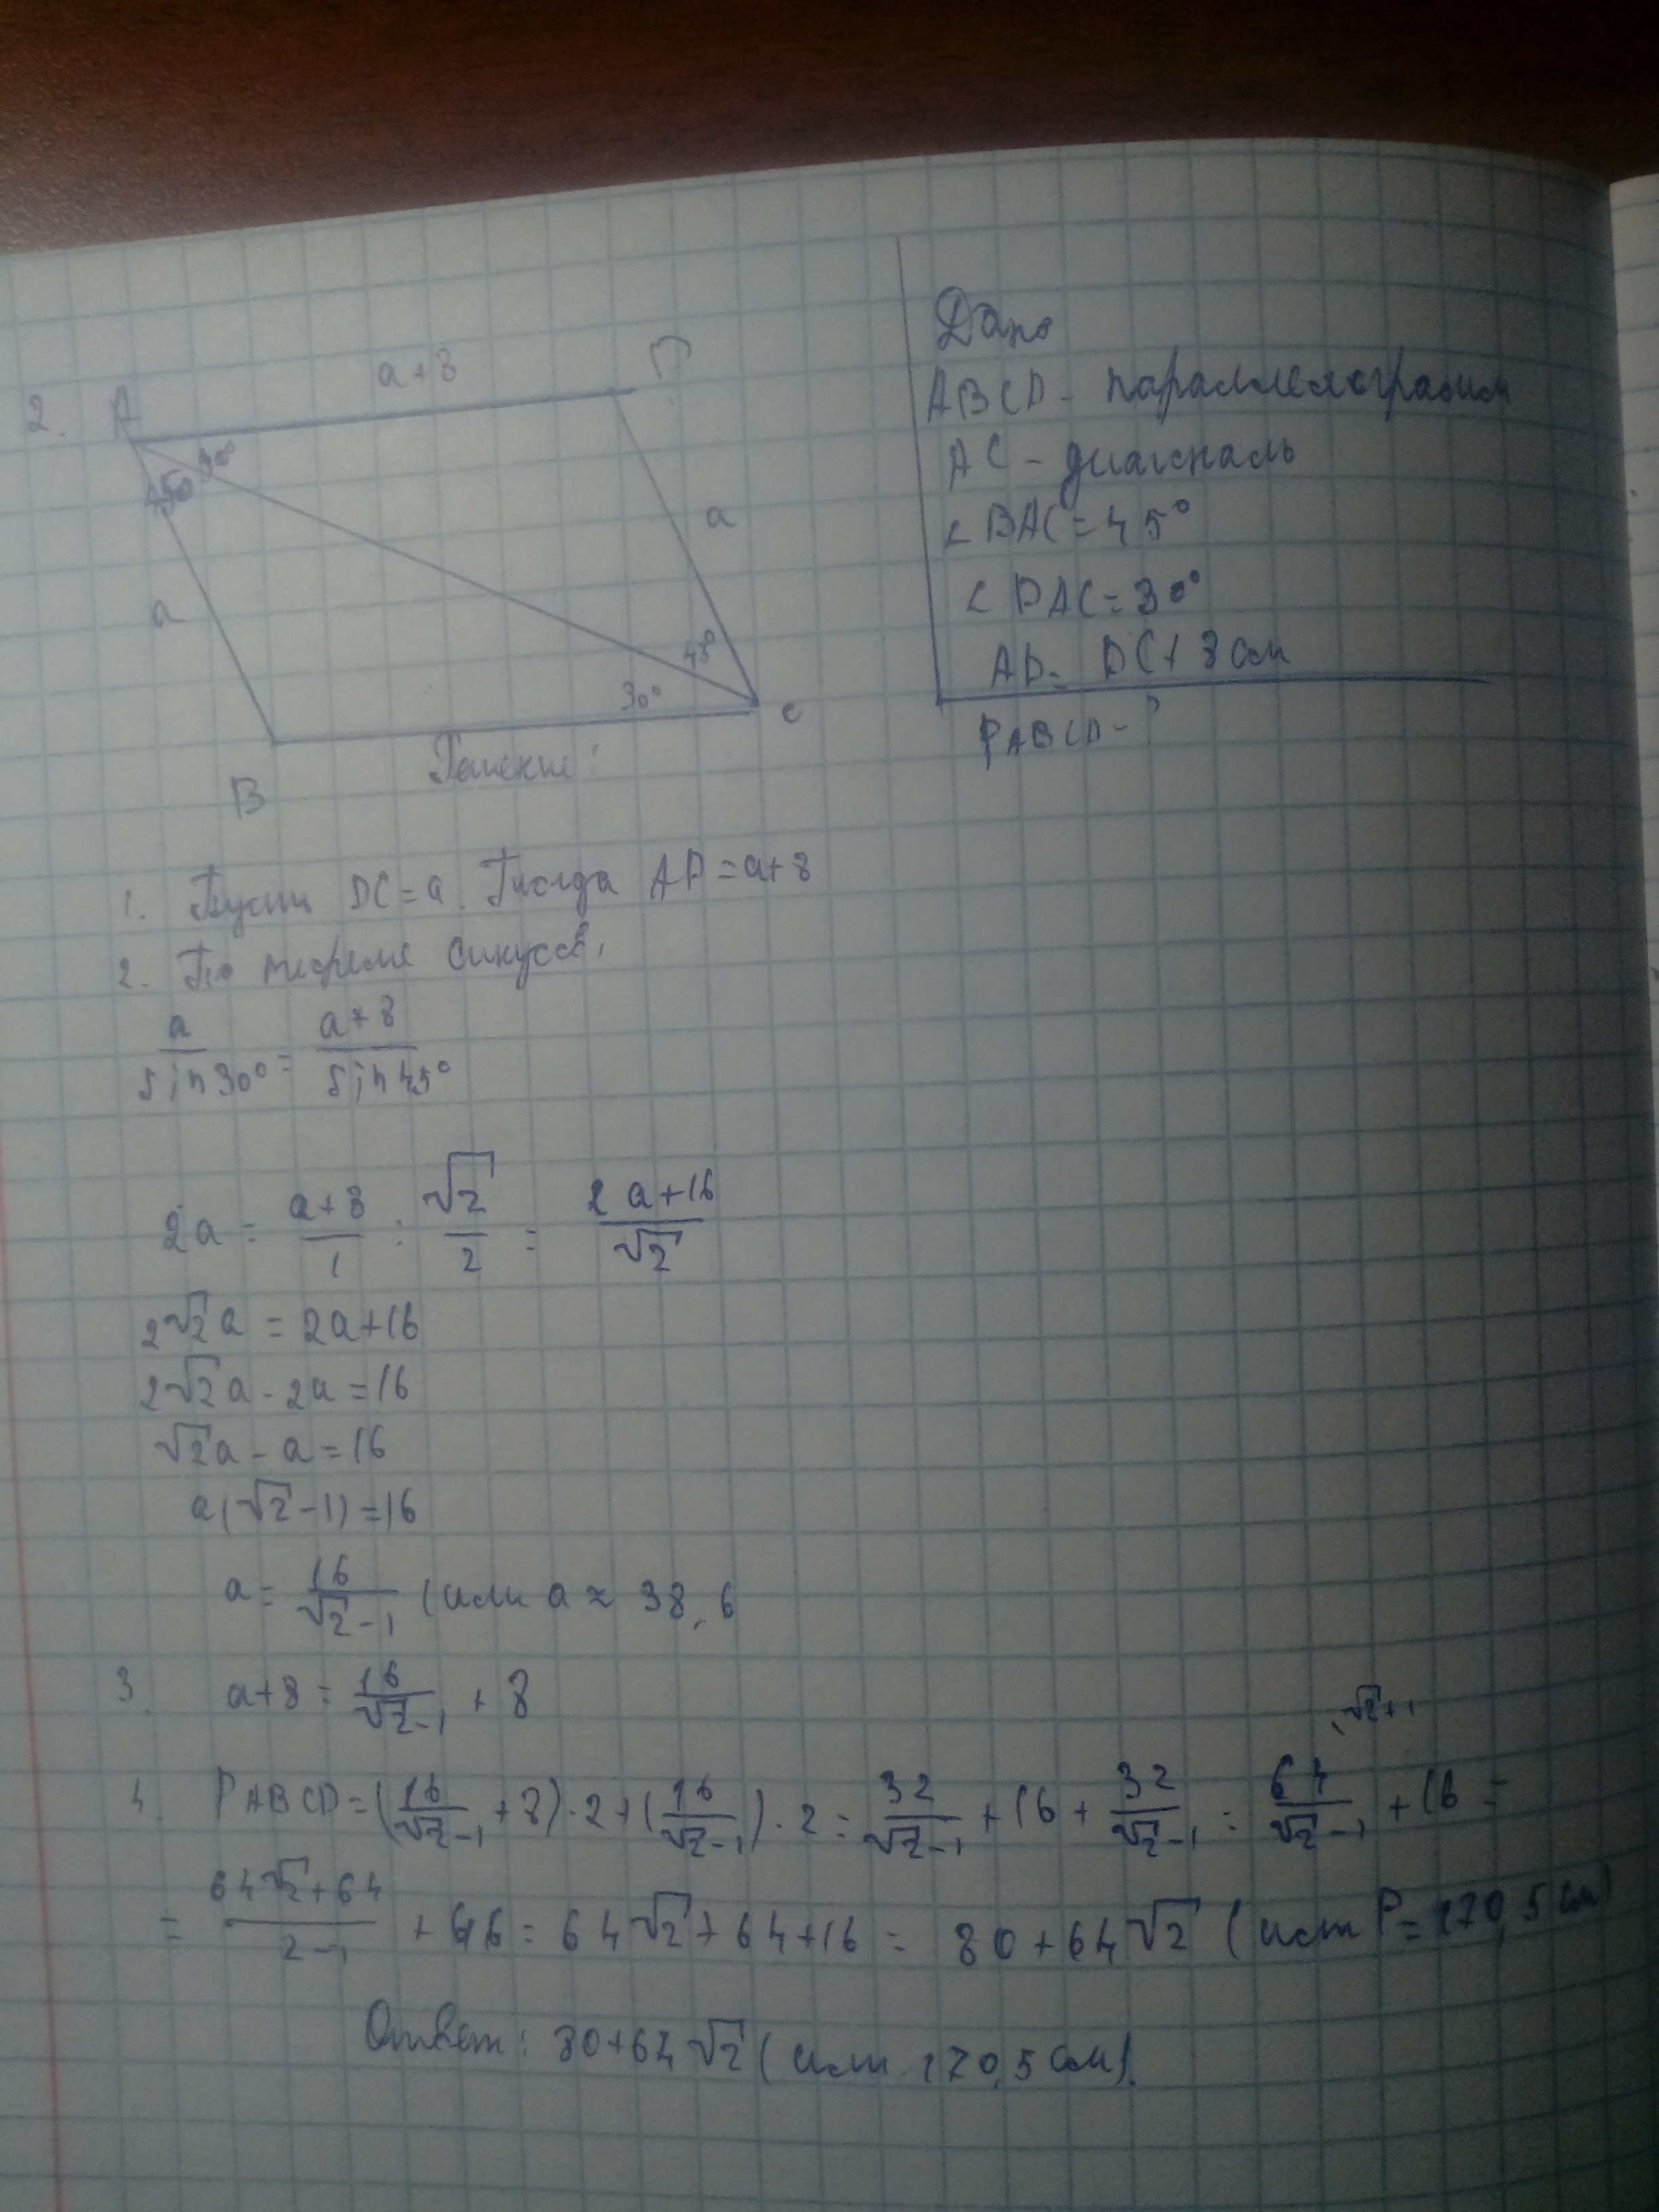 2.
A
a+8
D
30°
45°
a
a
45°
30°
C
B
Дано
ABCD - параллелограмм
AC - диагональ
∠BAC = 45°
∠DAC = 30°
AD = DC + 8 см
PABCD - ?
Решение:
1. Пусть DC = a. Тогда AD = a+8
2. По теореме синусов,
a/sin30° = (a+8)/sin45°
2a = (a+8)/1 : √2/2 = (2a+16)/√2
2√2a = 2a+16
2√2a - 2a = 16
√2a - a = 16
a(√2-1) = 16
a = 16/(√2-1) (или a ≈ 38,6
3. a+8 = 16/(√2-1) + 8
√2+1
4. PABCD = (16/(√2-1) + 8)·2 + (16/(√2-1))·2 = 32/(√2-1) + 16 + 32/(√2-1) = 64/(√2-1) + 16 =
= (64√2+64)/(2-1) + 16 = 64√2 + 64 + 16 = 80 + 64√2 (или P = 170,5 см)
Ответ: 80+64√2 (или 170,5 см).